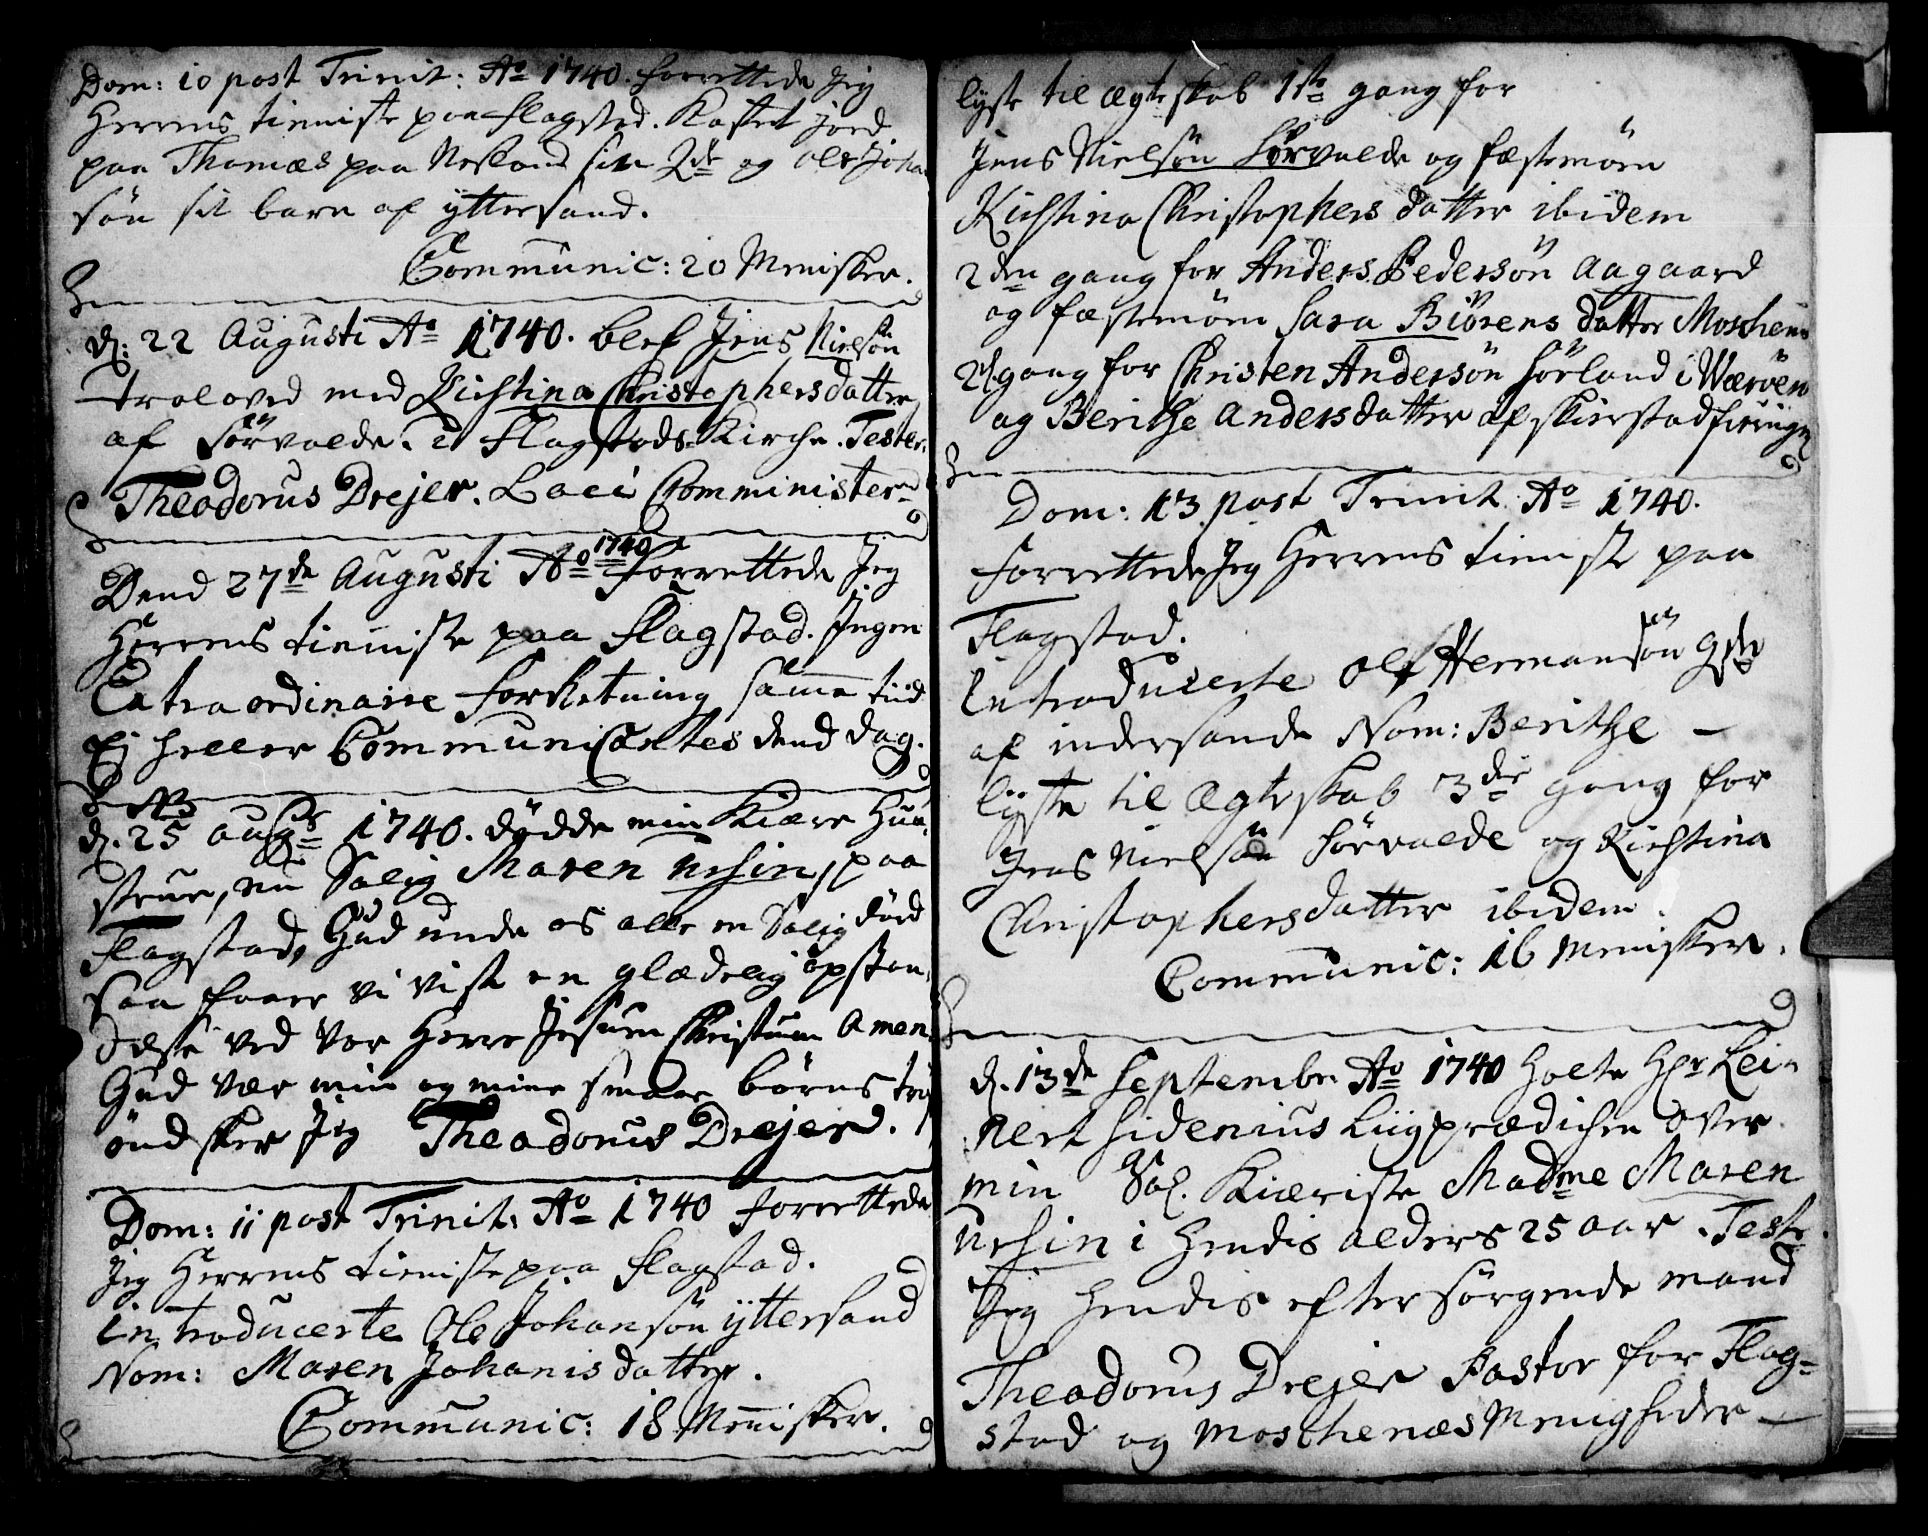 Dom: 10 post Trinit: Ao 1740. forrettede Jeg
Herrens tienniste paa Flagstad. Kastet jord
paa Thomæs paa Nesland sin 2de og Ole Joha
søn sit barn af yttersand.
Communic: 20 Mennisker.
d: 22 Augusti Ao 1740. blef Jens Nielsøn
troloved med Kirstina Christophersdatter
af Sørvalde. i Flagstads Kirche. Tester.
Theodorus Drejer. Loci Comminister
Dend 27de Augusti Ao 1740 forrettede Jeg
Herrens tienniste paa Flagstad. Ingen
Extraordinaire forretning samme tiid
Ej heller Communicantes dend dag.
NB
d. 25 Aug: 1740. dødde min Kiære Huu-
strue, nu Salig Maren Ursin, paa
Flagstad, Gud unde os alle en Salig død
saa faaer vi vist en glædelig opstan-
delse ved vor Herre Jesum Christum Amen.
Gud vær min og mine smaae børns trøst
ønsker Jeg Theodorus Drejer.
Dom: 11 post Trinit: Ao 1740 forrettede
Jeg Herrens tienniste paa Flagstad.
Introducerte Ole Johansøn yttersand
Nom: Maren Johanisdatter.
Communic: 18 Mennisker.
lyste til Ægteskab 1ste gang for
Jens Nielsøn Sørvalde og fæstemøen
Kirstina Christophers datter ibidem
2den gang for Anders Pedersøn Aagaard
og fæstemøen Sara Biørens datter Moschenes
2d gang for Christen Andersøn Sørland i Værøen
og Berithe Andersdatter af skierstadfieringen
Dom: 13 post Trinit: Ao 1740.
forrettede Jeg Herrens tienniste paa
Flagstad.
Introducerte Ole Hermansøn
af indersande Nom: Berithe —
lyste til Ægteskab 3die gang for
Jens Nielsøn Sørvalde og Kirstina
Christophersdatter ibidem.
Communic: 16 Mennisker.
d. 13de Septembr: Ao 1740 holte Hr Lei-
nert Sidenius Liigprædichen over
min Sal. Kiæriste Madme Maren
Ursin i hendis alders 25 aar. Test:
Jeg hendis efter sørgende mand
Theodorus Drejer Pastor for Flag-
stad og Moschenæs Menigheder —